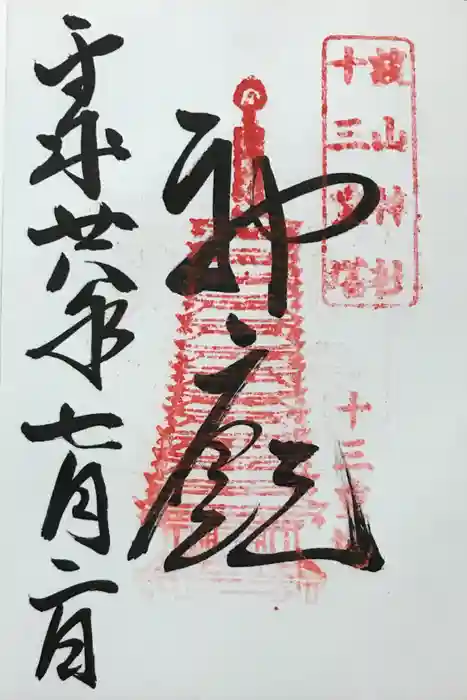 談山神社
十三重塔
十三重塔
神廟
平成廿八年七月二日